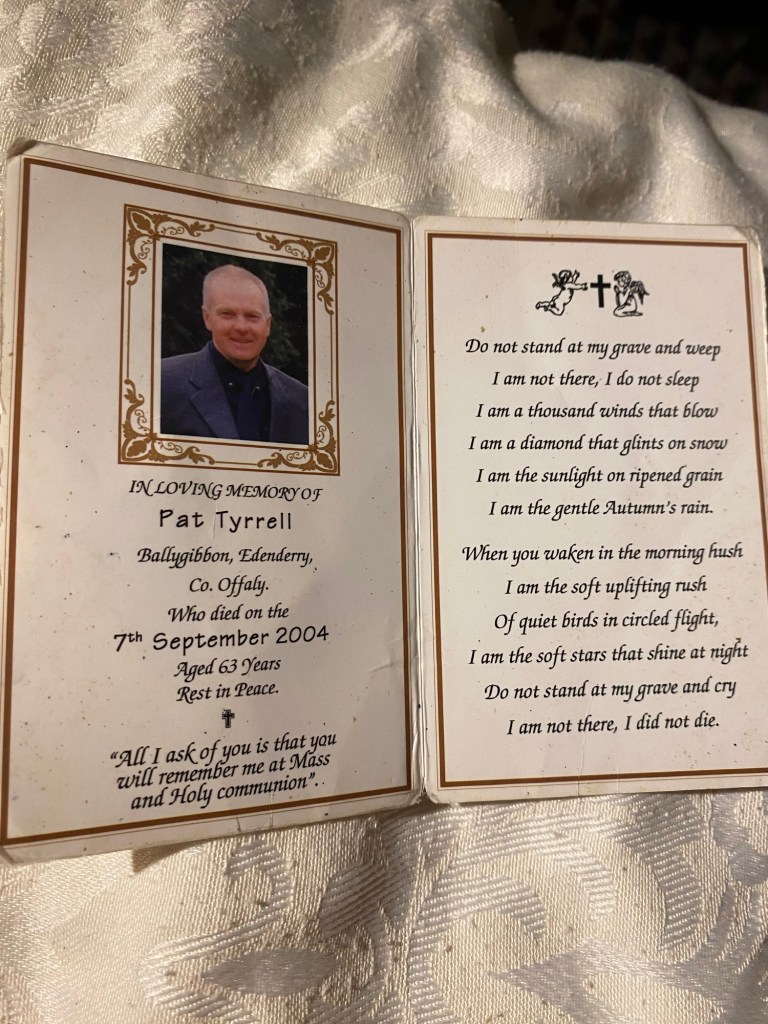 IN LOVING MEMORY OF
Pat Tyrrell
Ballygibbon, Edenderry,
Co. Offaly.
Who died on the
7th September 2004
Aged 63 Years
Rest in Peace.
"All I ask of you is that you
will remember me at Mass
and Holy communion".
Do not stand at my grave and weep
I am not there, I do not sleep
I am a thousand winds that blow
I am a diamond that glints on snow
I am the sunlight on ripened grain
I am the gentle Autumn's rain.
When you waken in the morning hush
I am the soft uplifting rush
Of quiet birds in circled flight,
I am the soft stars that shine at night
Do not stand at my grave and cry
I am not there, I did not die.